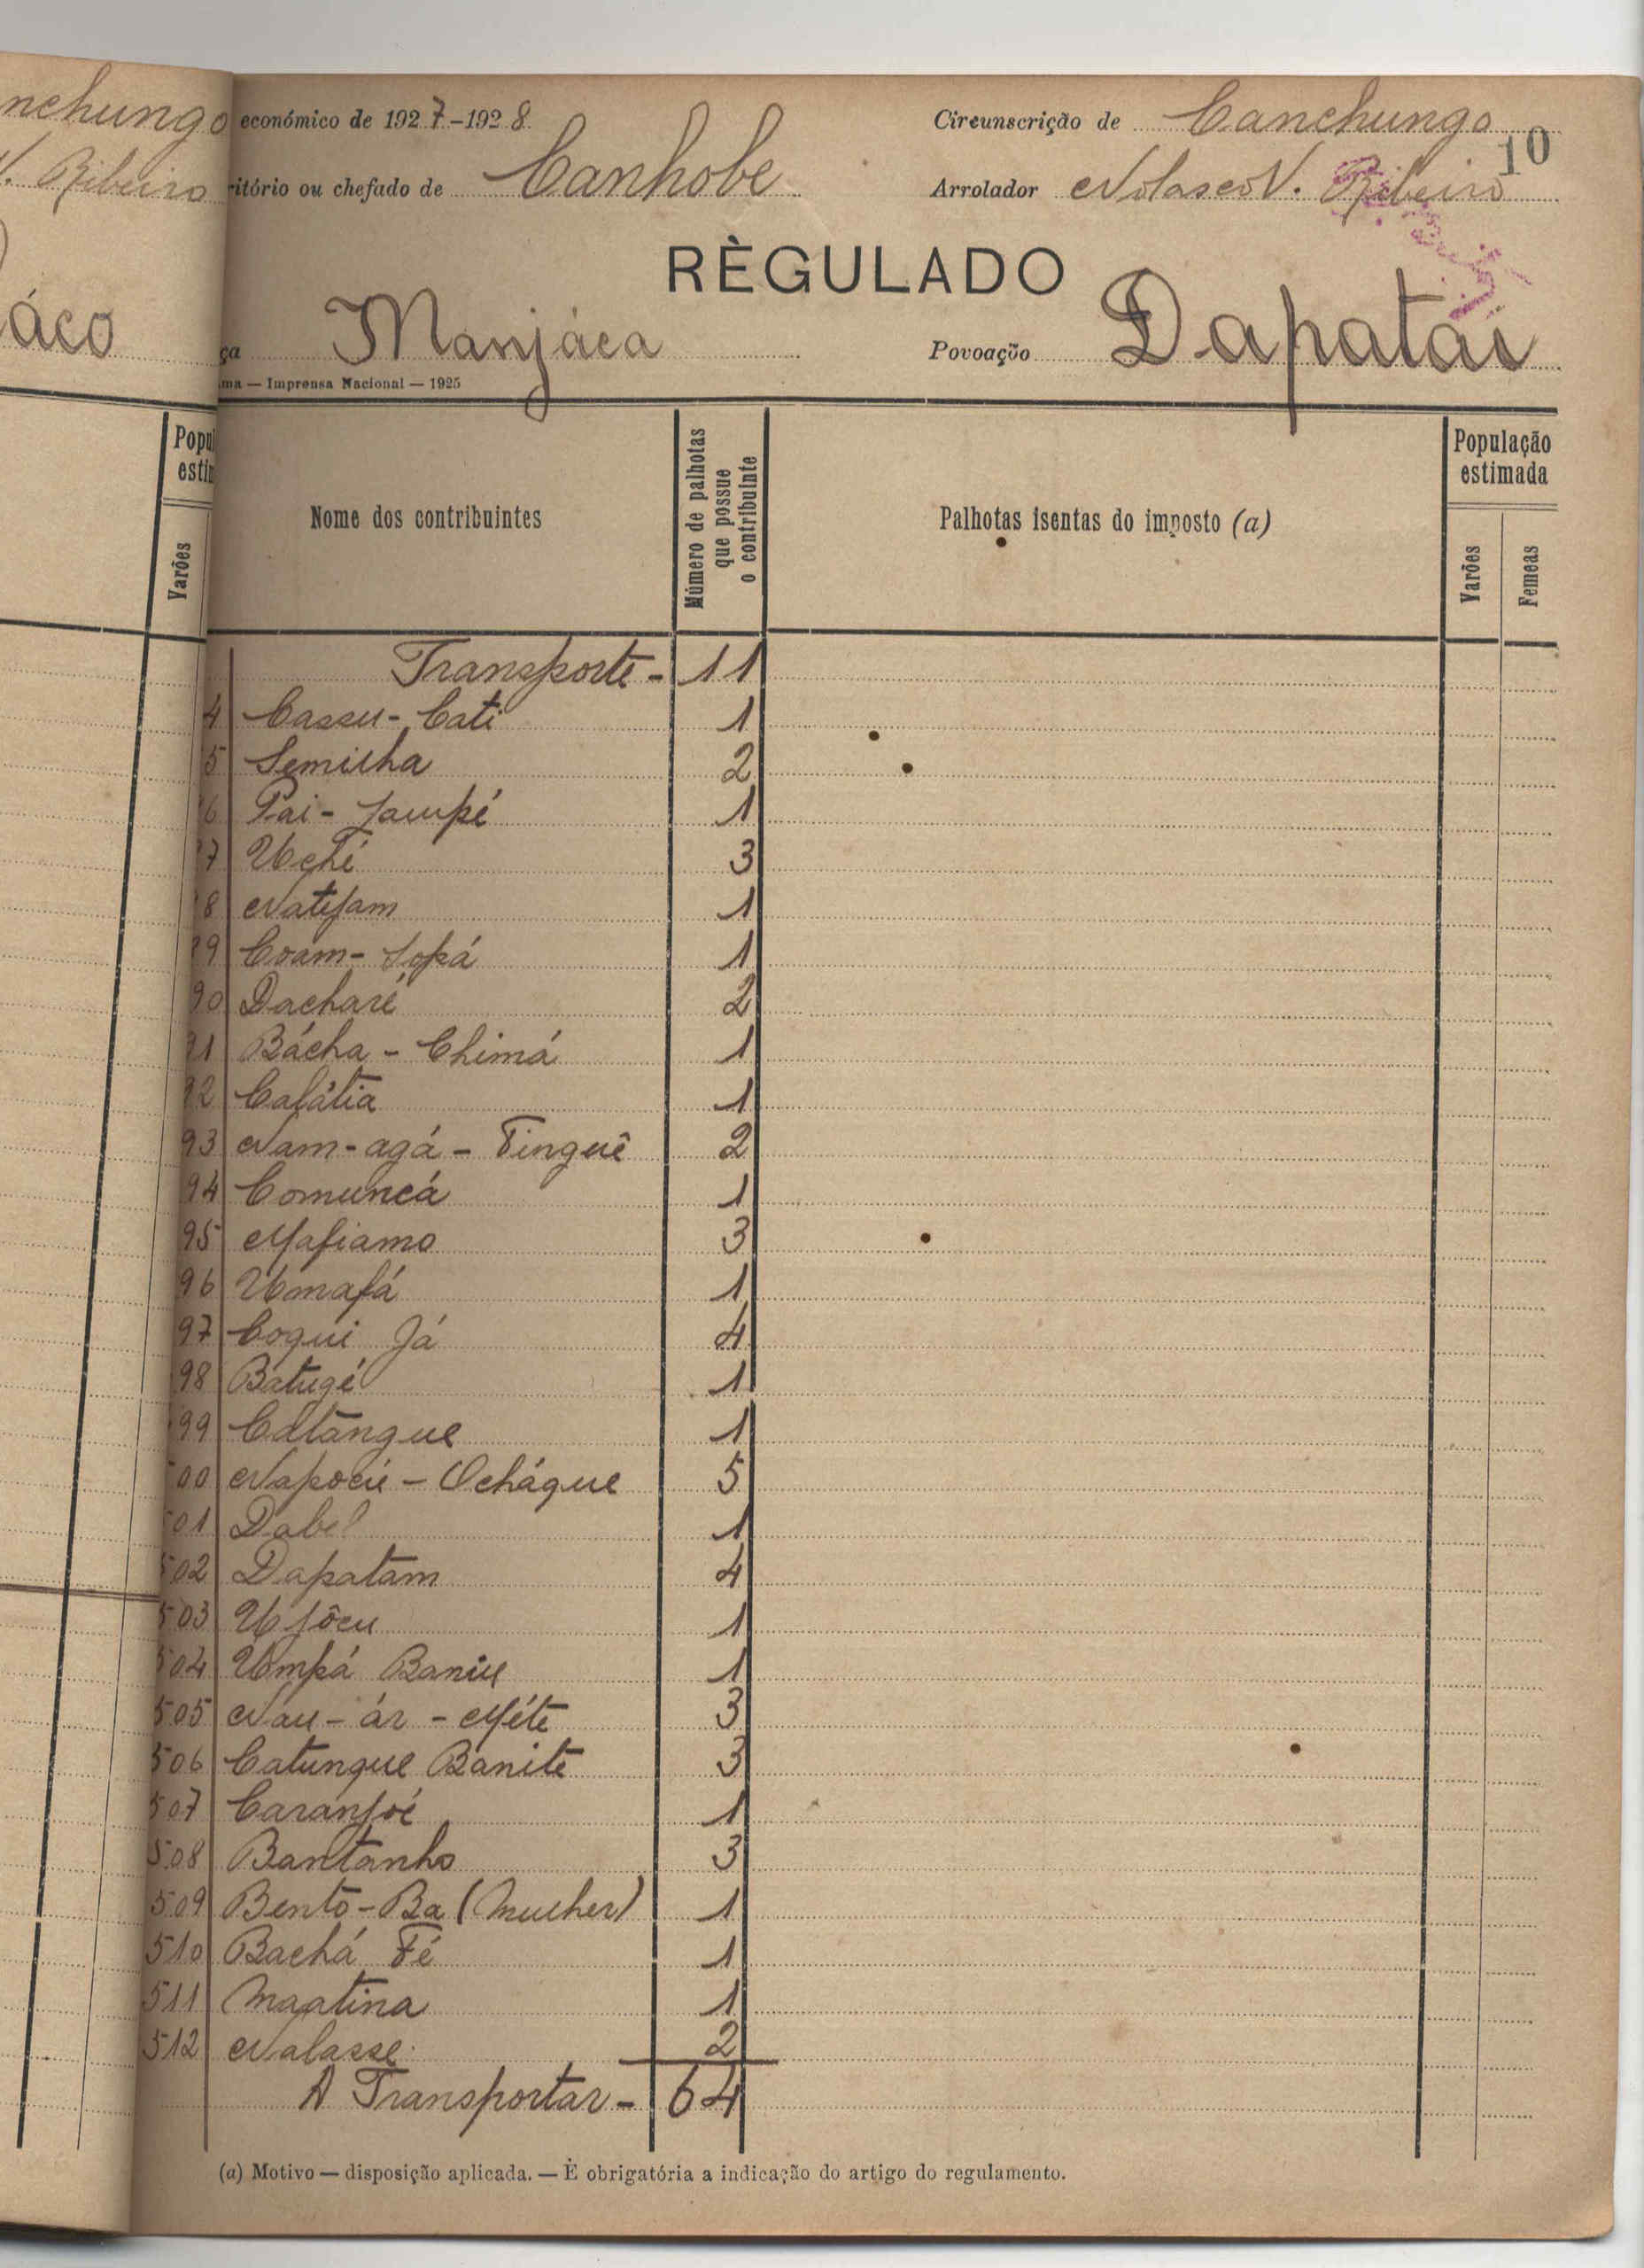 nchungo
V. Ribeiro
áco
Popul
estim
Varões
económico de 1927-1928
Circunscrição de Canchungo
10
ritório ou chefado de Canhobe
Arrolador Nolasco V. Ribeiro
RÈGULADO
ça Manjáca
Povoação Dapatai
ma — Imprensa Nacional — 1925
Nome dos contribuintes
Número de palhotas que possue o contribuinte
Palhotas isentas do imposto (a)
População estimada
Varões
Femeas
Transporte - 11
4 Cassu-Cati 1
5 Semilha 2
6 Pai - Jampé 1
7 Uché 3
8 Natijam 1
89 Coam - Sopá 1
90 Dacharé 2
91 Bácha - Chimá 1
92 Cafátia 1
93 Nam-agá - Tinguê 2
94 Comuncá 1
95 Mafiamo 3
96 Umafá 1
97 Coqui Já 4
98 Batugé 1
99 Catangue 1
500 Napocú - Ochágue 5
501 Dabel 1
502 Dapatam 4
503 Ujôcu 1
504 Umpá Baniu 1
505 Náu - ár - Méte 3
506 Catungue Banite 3
507 Caranjoé 1
508 Bantanho 3
509 Bento-Ba (Mulher) 1
510 Bachá Fé 1
511 Maatina 1
512 Nalasse 2
A Transportar - 64
(a) Motivo — disposição aplicada. — É obrigatória a indicação do artigo do regulamento.